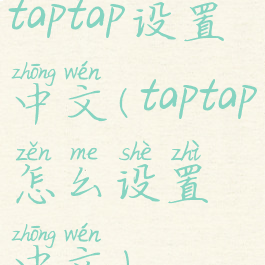 taptap设置
zhōng wén
中文(taptap
zěn me shè zhì
怎么设置
zhōng wén
中文)